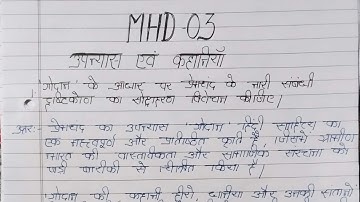 MHD-03
उपन्यास एवं कहानियाँ
'गोदान' के आधार पर प्रेमचंद के नारी संबंधी
दृष्टिकोण का सोदाहरण विवेचन कीजिए।
उत्तर:- प्रेमचंद का उपन्यास 'गोदान' हिंदी साहित्य का
एक महत्वपूर्ण और प्रतिष्ठित कृति है। जिसमें ग्रामीण
भारत की वास्तविकता और सामाजिक संरचना को
बड़ी बारीकी से चित्रित किया है।
'गोदान' की कहानी होरी, धनिया और उनकी